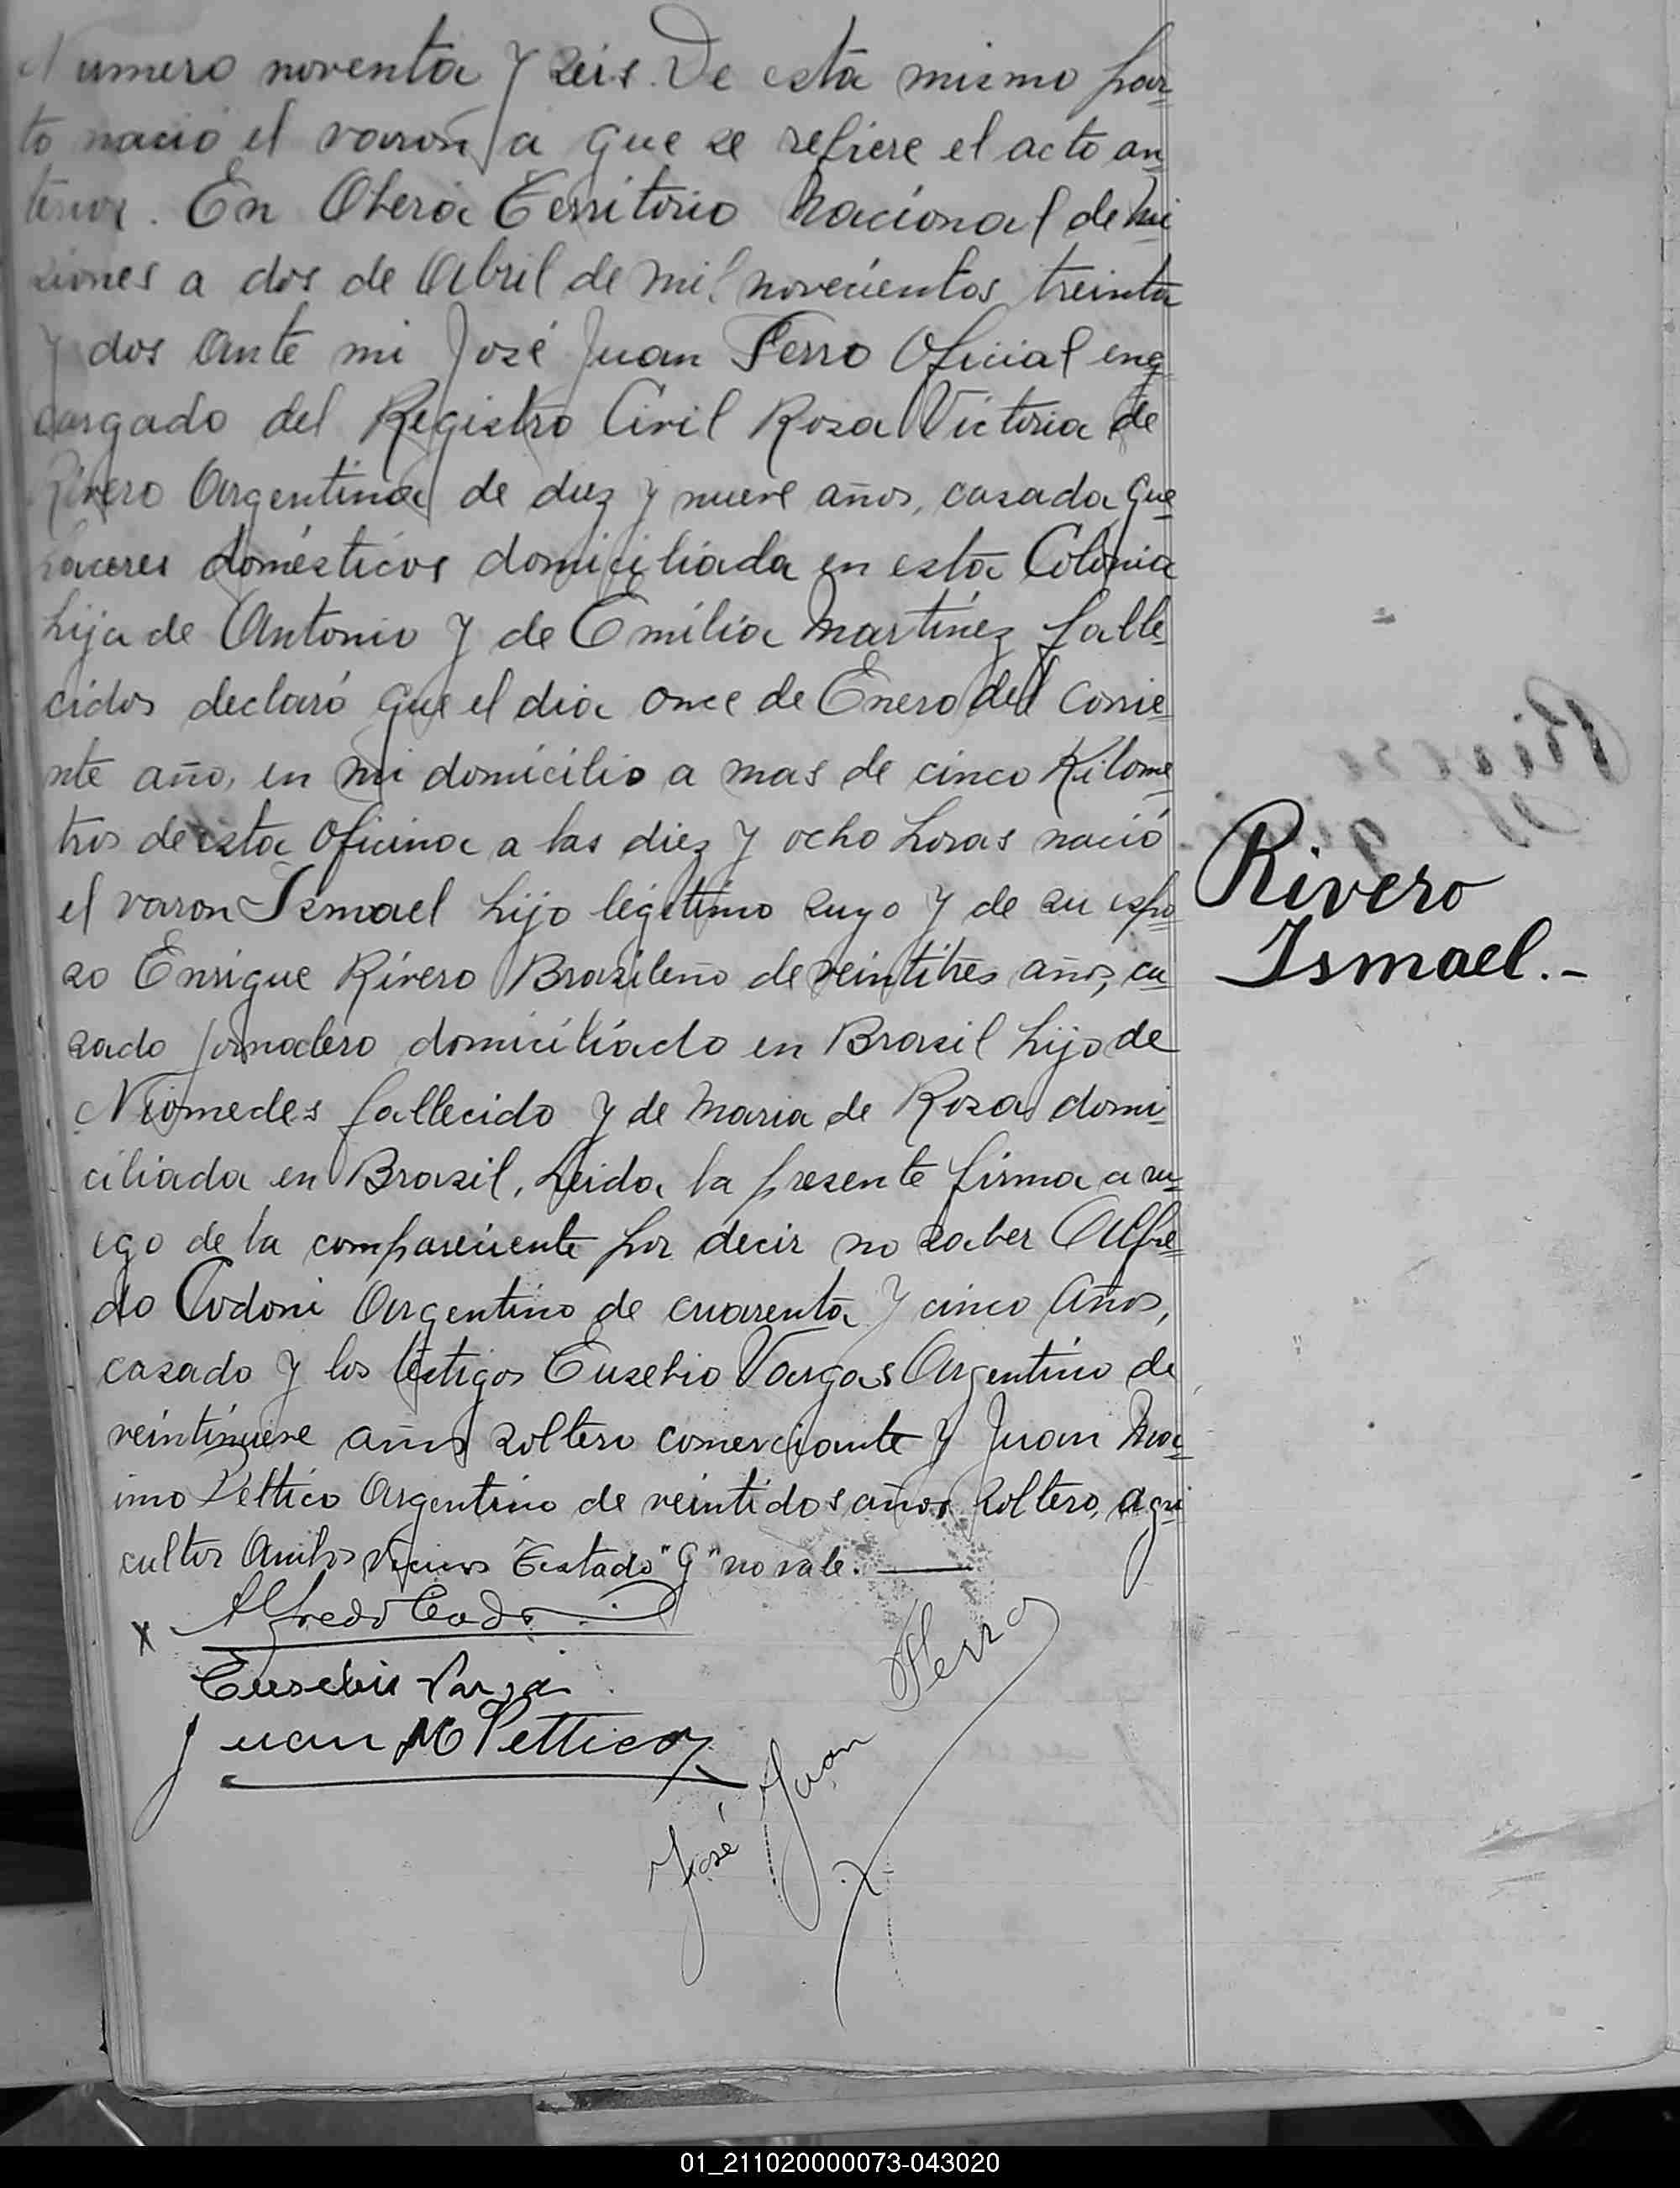 Numero noventa y seis. De esta mismo par-
to nació el varon a que se refiere el acto an-
terior. En Oberá Territorio Nacional de Mi-
siones a dos de Abril de mil novecientos treinta
y dos ante mi José Juan Ferro Oficial en-
cargado del Registro Civil Rosa Victoria de
Rivero Argentina de diez y nueve años, casada, que-
haceres domésticos domiciliada en esta Colonia
hija de Antonio y de Emilia Martínez falle-
cidos declaró que el dia once de Enero del corrie-
nte año, en mi domicilio a mas de cinco Kilome-
tros de esta oficina a las diez y ocho horas nació
el varon Ismael hijo legítimo suyo y de su espo-
so Enrique Rivero Brasileño de veintitres años, ca-
sado jornalero domiciliado en Brasil hijo de
Niomedes fallecido y de Maria de Rosa domi-
ciliada en Brasil. Leida la presente firma a ru-
ego de la compareciente por decir no saber Alfre-
do Codoni Argentino de cuarenta y cinco años,
casado y los testigos Eusebio Vargas Argentino de
veintinueve años soltero comerciante y Juan Ma-
imo Péttico Argentino de veintidos años soltero, agri-
cultor Ambos vecinos Testado "G" no vale.
Rivero
Ismael.-
X Alfredo Codoni
Eusebio Vargas
Juan M Pettico
José Juan Ferro
01_211020000073-043020